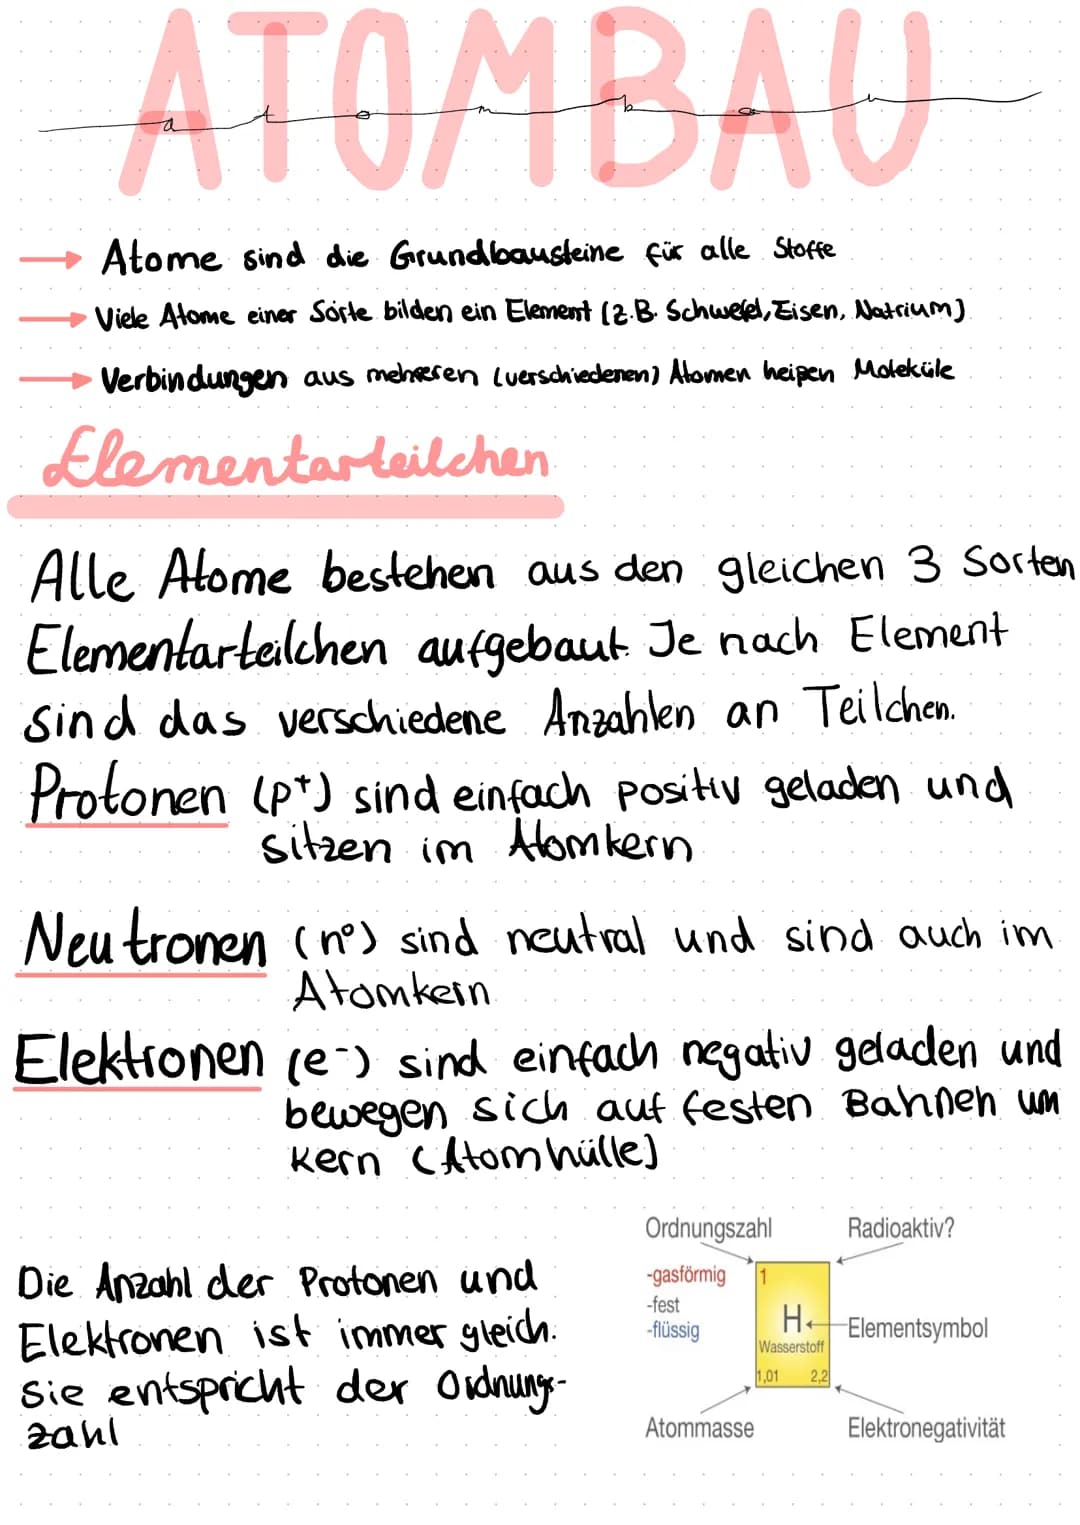 ATOMBAU
atombau
→ Atome sind die Grundbausteine für alle Stoffe
→ Viele Atome einer Sorte bilden ein Element (z.B. Schwefel, Eisen, Natrium)
→ Verbindungen aus mehreren (verschiedenen) Atomen heißen Moleküle
Elementarteilchen
Alle Atome bestehen aus den gleichen 3 Sorten
Elementarteilchen aufgebaut. Je nach Element
sind das verschiedene Anzahlen an Teilchen.
Protonen (p⁺) sind einfach positiv geladen und
sitzen im Atomkern
Neutronen (n⁰) sind neutral und sind auch im
Atomkern
Elektronen (e⁻) sind einfach negativ geladen und
bewegen sich auf festen Bahnen um
Kern (Atomhülle)
Die Anzahl der Protonen und
Elektronen ist immer gleich.
Sie entspricht der Ordnungs-
zahl
Ordnungszahl
Radioaktiv?
-gasförmig
-fest
-flüssig
1
H
Wasserstoff
1,01 2,2
Elementsymbol
Atommasse
Elektronegativität